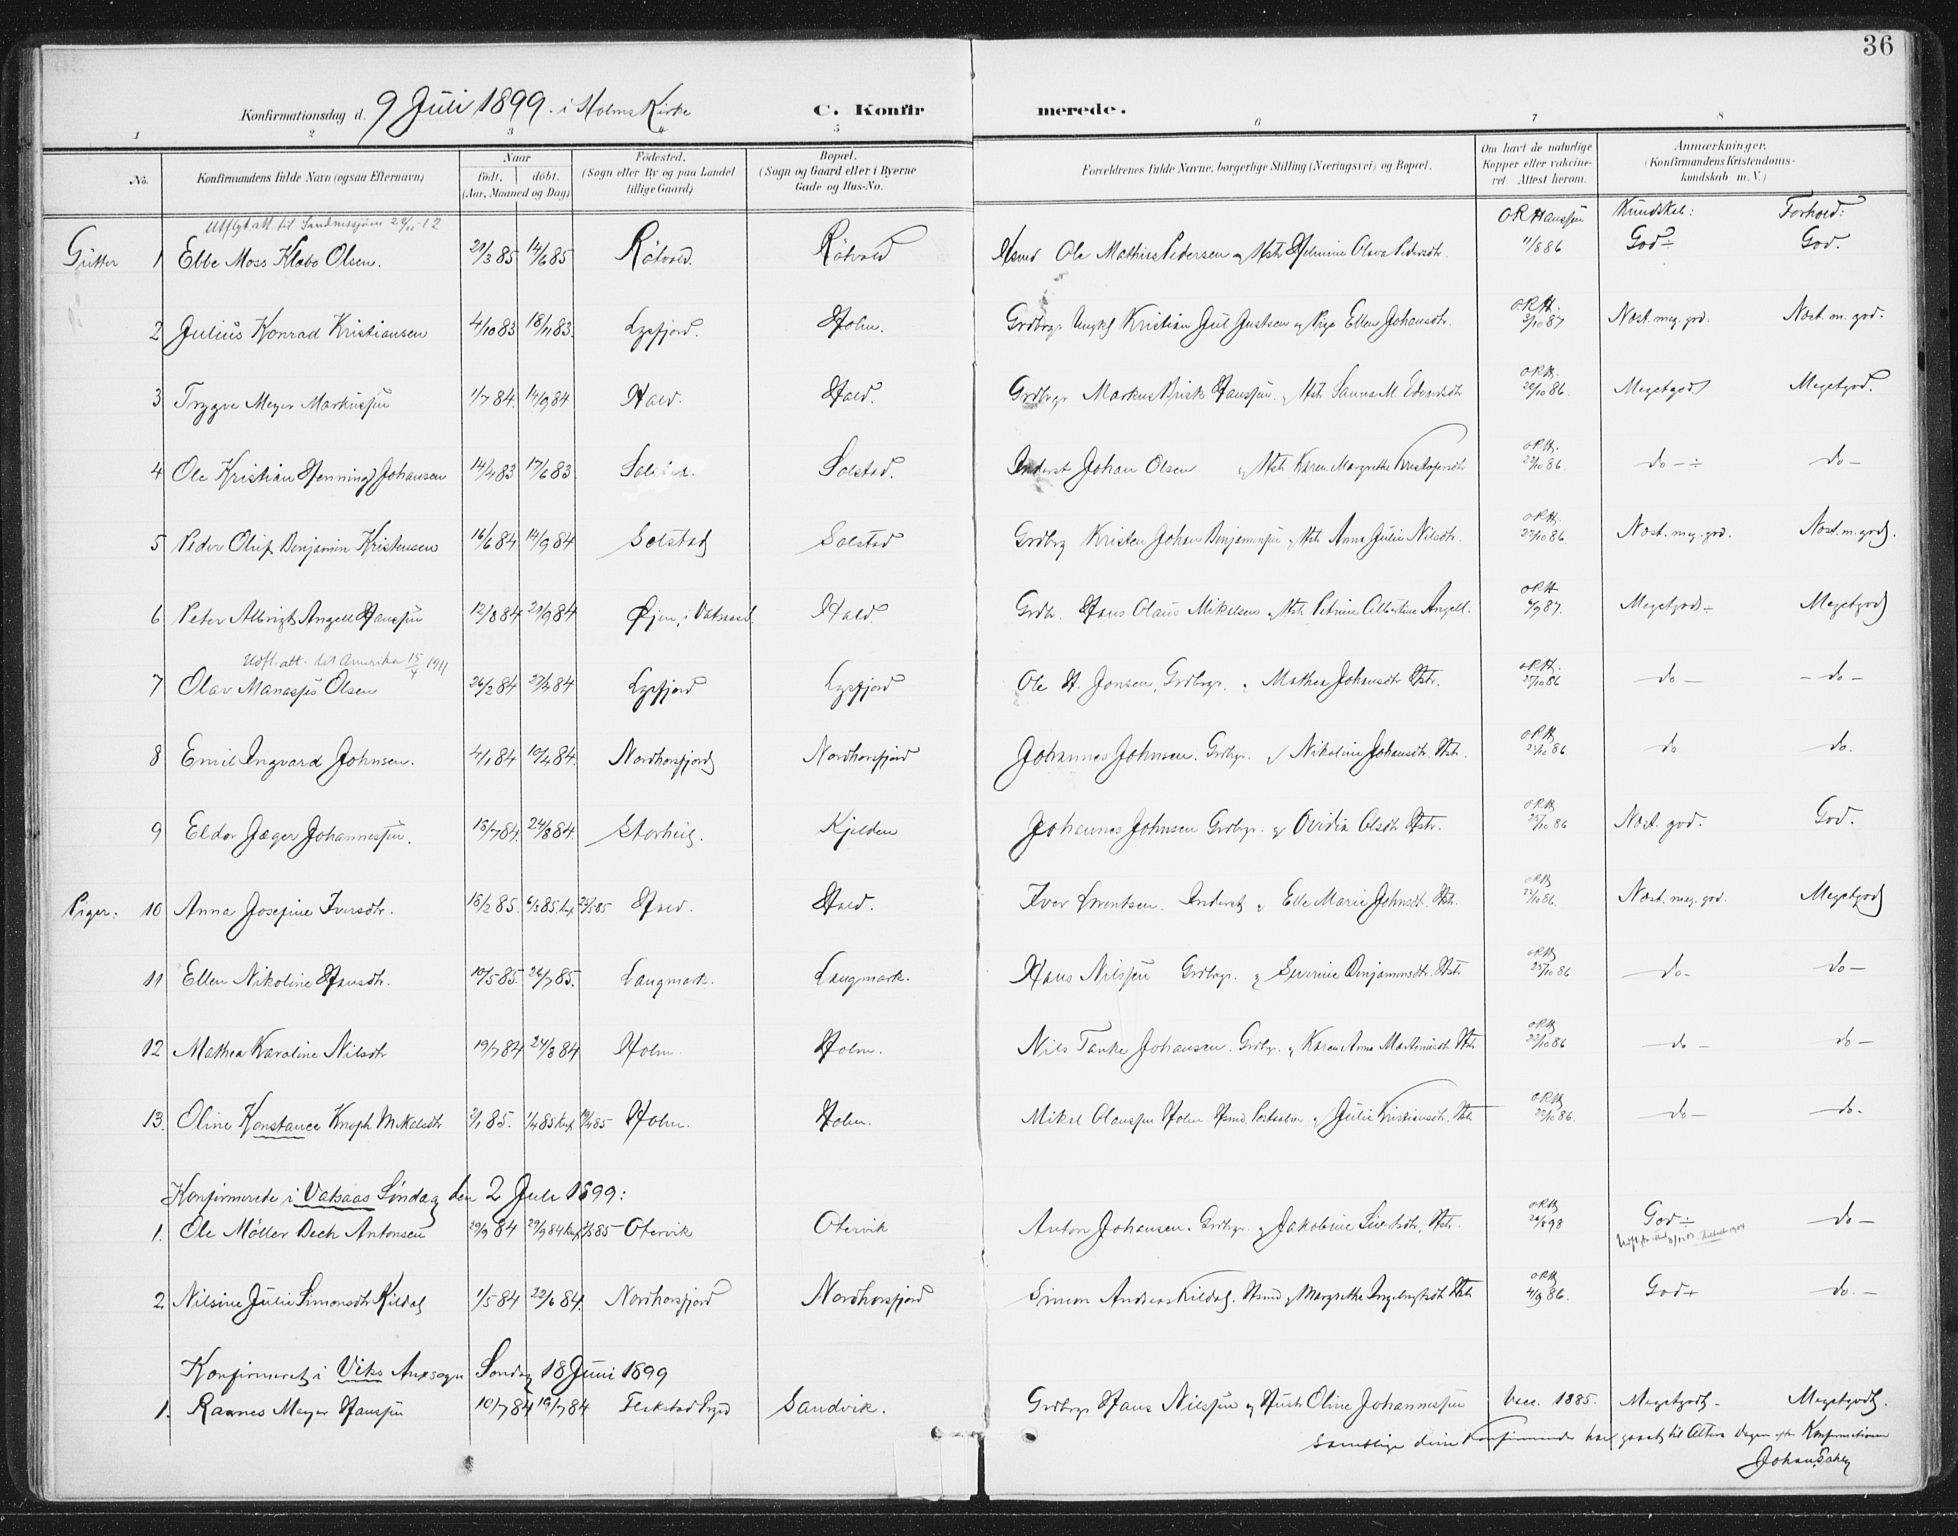 36
Konfirmationsdag d. 9 Juli 1899. i Holms Kirke C. Konfirmerede.
1 2 3 4 5 6 7 8
No. Konfirmandens fulde Navn (ogsaa Efternavn) Naar født, døbt. (Aar, Maaned og Dag) Fødested. (Sogn eller By og paa Landet tillige Gaard) Bopæl. (Sogn og Gaard eller i Byerne Gade og Hus-No. Forældrenes fulde Navne, borgerlige Stilling (Næringsvei) og Bopæl. Om havt de naturlige Kopper eller vakcineret Attest herom. Anmærkninger. (Konfirmandens Kristendomskundskab m. V.)
Kundskab: Forhold:
Utflyt. att. til
Gutter 1 Ebbe Moss Klæbo Olsen. 21/3 85 14/6 85 Røtvold. Røtvold Hsmd Ole Mathias Pedersen og Hstr Helmine Olava Pedersdtr. O R Hanssen 11/8 86 God ÷ God.
2 Julius Konrad Kristiansen 4/10 83 18/11 83. Lysfjord. Holm. Grdbrgr Ungkl Kristian Jul Justsen og Pige Ellen Johansdtr. O.R.H. 3/10 87 Næst. meg. god. Næst. m. god.
3 Trygve Meyer Markussen 1/7 84. 14/9 84 Hald. Hald. Grdbrgr Markus Brisk Hanssen. og Hstr Sanna M. Edvardsdtr O.R.H. 22/10 86. Megetgod Megetgod.
4 Ole Kristian Henning Johansen 14/4 83 17/6 83. Solstad. Solstad. Inderst Johan Olsen og Hstr. Karen Margrethe Kristofersdtr O.R.H. 22/10 86. do - ÷ do -
5 Peder Oluf Benjamin Kristensen 16/6 84 14/9 84 Solstad Solstad Grdbrg Kristen Johan Benjaminsen og Hstr Anna Julie Nilsdtr. O.R.H. 22/10 86 Næst. meg. god. Næst. m. god.
6 Peter Albrigt Angell Hanssen 12/8 84 21/9 84 Øjen, i Vatsaas. Hald. Grdbr. Hans Olaus Mikelsen og Hstr. Petrine Albertine Angell. O.R.H 4/9 87. Megetgod - Megetgod
Udfl. att. til Amerika 15/4 1911
7 Olav Manasses Olsen 26/2 84 27/4 84 Lysfjord Lysfjord Ole H. Jonsen, Grdbrgr. og Mathea Johansdtr Hstr. O.R.H. 25/10 86 do - - do -
8 Emil Ingvard Johnsen. 4/1 84 10/4 84. Nordhorsfjord Nordhorsfjord Johannes Johnsen. Grdbrgr. og Nikoline Johansdtr. Hstr. O.R.H 25/10 86 do do.
9 Eldor Jæger Johannessen. 18/7 84. 24/8 84. Storheil. Kjelden Johannes Johnsen Grdbrgr. og Ovidia Olsdtr Hstr. O.R.H 25/10 86 Næst. god. God.
Piger: 10 Anna Josefine Iversdtr. 18/2 85. 6/3 85. Hald. Hald. Iver Lorentsen. Inderst og Elle Marie Johnsdt. Hstr. O.R.H 22/10 86. Næst. meg. god. Megetgod
11 Ellen Nikoline Hansdtr. 10/5 85. 26/7 85. Langmark. Langmark. Hans Nilssen Grdbrgr. og Severine Benjaminsdtr. Hstr O.R.H 25/10 86 do - do -
12 Mathea Karoline Nilsdtr 19/7 84 24/8 84 Holm. Holm. Nils Tanke Johansen. Grdbgr. og Karen Anna Martinusdtr Hstr O.R.H 22/10 86 do - do -
13. Oline Konstance Knoph Mikalsdtr 2/1 85. Holm. Holm. Mikal Olaussen Holm Hsmd. og Julie Kristiansdtr. Hstr O.R.H 22/10 86. do - do -
Konfirmerede i Vatsaas Søndag den 2 Juli 1899:
1. Ole Möller Bech Antonsen 20/9 84 Otervik Otervik Anton Johansen. Grdbrgr. og Jakobine Sivertsdtr. Hstr. O.R.H God ÷ do -
2. Nilsine Julie Simonsdtr Kildal 1/5 84 22/6 84. Nordhorsfjord Nordhorsfjord Simon Andreas Kildal. Hsmd og Margrethe Ingebrigtsdtr Hstr O.R.H 4/9 86. God + do. -
Konfirmeret i Viks Anxsogn Søndag 18 Juni 1899
1. Ragnes Meyer Hanssen 10/7 84 19/7 84 Sandvik. Grdbrgr Hans Nilssen og Hustr Oline Johannessen Vacc. 1885. Megetgodt - Megetgodt.
Samtlige disse Konfirmander har gaaet til Alters Dagen efter Konfirmationen